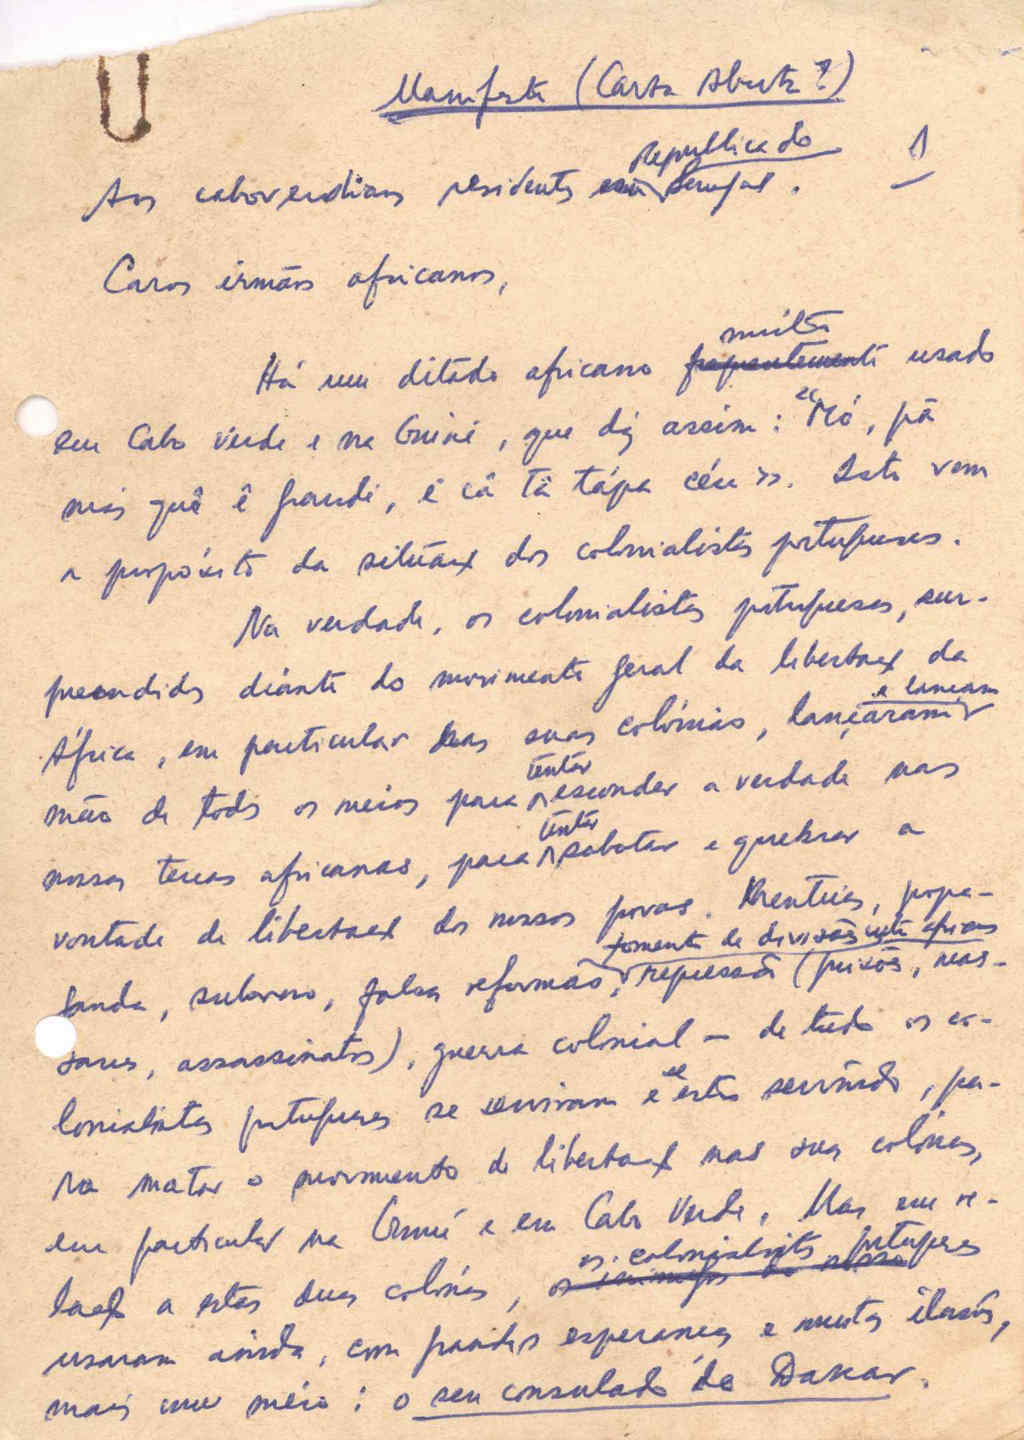 Manifesto (Carta Aberta?)
1
Aos caboverdianos residentes República do Senegal.
Caros irmãos africanos,
Há um ditado africano muito usado
em Cabo Verde e na Guiné, que diz assim: "Mó, pâ
más quê ê grandi, ê câ tâ tápa céu». Isto vem
a propósito da situação dos colonialistas portugueses.
Na verdade, os colonialistas portugueses, sur-
preendidos diante do movimento geral da libertação da
África, em particular nas suas colónias, lançaram e lançam
mão de todos os meios para tentar esconder a verdade nas
nossas terras africanas, para tentar sabotar e quebrar a
vontade de libertação dos nossos povos. Mentiras, propa-
ganda, suborno, falsas reformas, fomento de divisões entre africanos, repressão (prisões, mas-
sacres, assassinatos), guerra colonial — de tudo os co-
lonialistas portugueses se serviram e se estão servindo, pa-
ra matar o movimento de libertação nas suas colónias,
em particular na Guiné e em Cabo Verde. Mas em re-
lação a estas duas colónias, os colonialistas portugueses
usaram ainda, com grandes esperanças e muitas ilusões,
mais um meio: o seu consulado de Dakar.